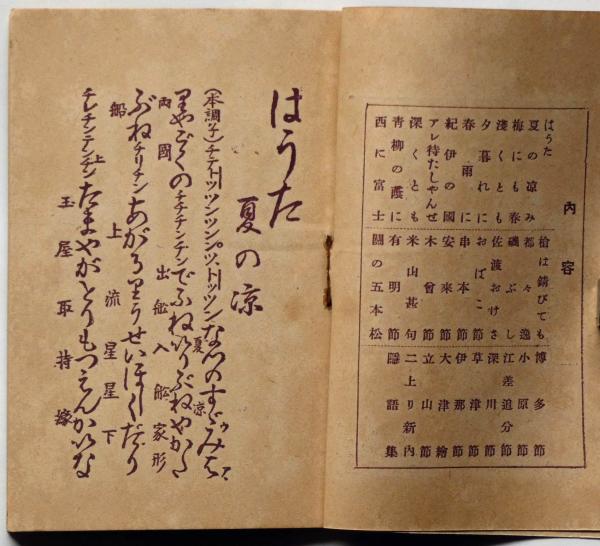 內容
はうた
夏の凉み
梅にも春
淺くとも
夕暮れに
春雨に
紀伊の國
アレ待たしやんせ
深くとも
靑柳の蔭に
西に富士
槍は錆びても
都々逸
磯ぶし
佐渡おけさ
おばこ節
串本節
安來節
木曾節
米山甚句
有明節
關の五本松
博多節
小原節
江差追分
深川節
草津節
伊那節
大津繪
立山節
二上り新內
隱語集
はうた
夏の凉
(本調子)なつのすゞみは
夏 凉
りやうごくのチチチンチンでふねいりぶねやかた
両國 出舩入舩家形
ぶねチリチンあがるりうせいほしくだり
船 上 流星星下
チレチンテンチンたまやがとりもつえんかいな
上 玉屋取持縁